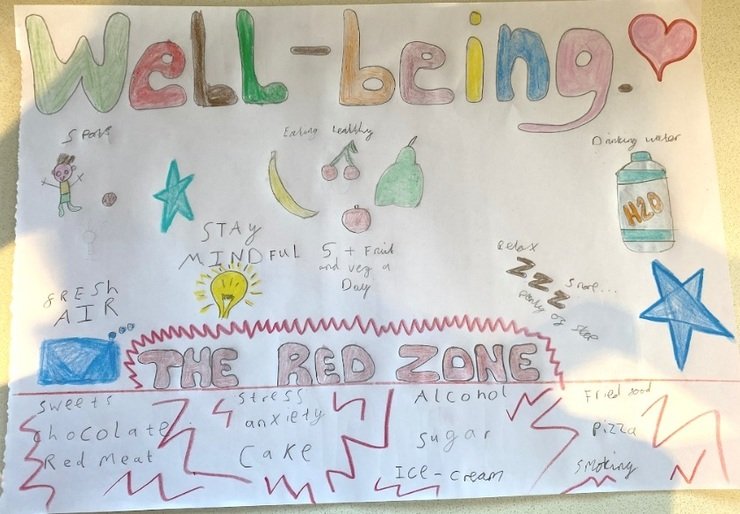 Well-being.
Sports
Eating healthy
Drinking water
H2O
STAY
MINDFUL
5 + Fruit
and veg a
Day
Relax
ZZZ
Snore...
Plenty of sleep
FRESH
AIR
THE RED ZONE
Sweets
chocolate
Red meat
Stress
anxiety
Cake
Alcohol
Sugar
ICE-cream
Fried food
Pizza
Smoking